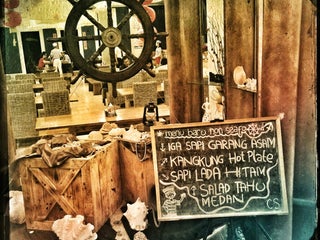 menu baru non seafood
IGA SAPI GARANG ASAM
KANGKUNG Hot Plate
SAPI LADA HITAM
SALAD TAHU
MEDAN
CS